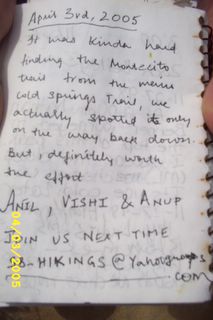 April 3rd, 2005
It was kinda hard
finding the Montecito
trail from the main
cold springs trail, we
actually spotted it only
on the way back down.
But, definitely worth
the effort
ANIL, VISHI & ANUP
JOIN US NEXT TIME
-HIKINGS@Yahoogroups
.COM
04/03/2005